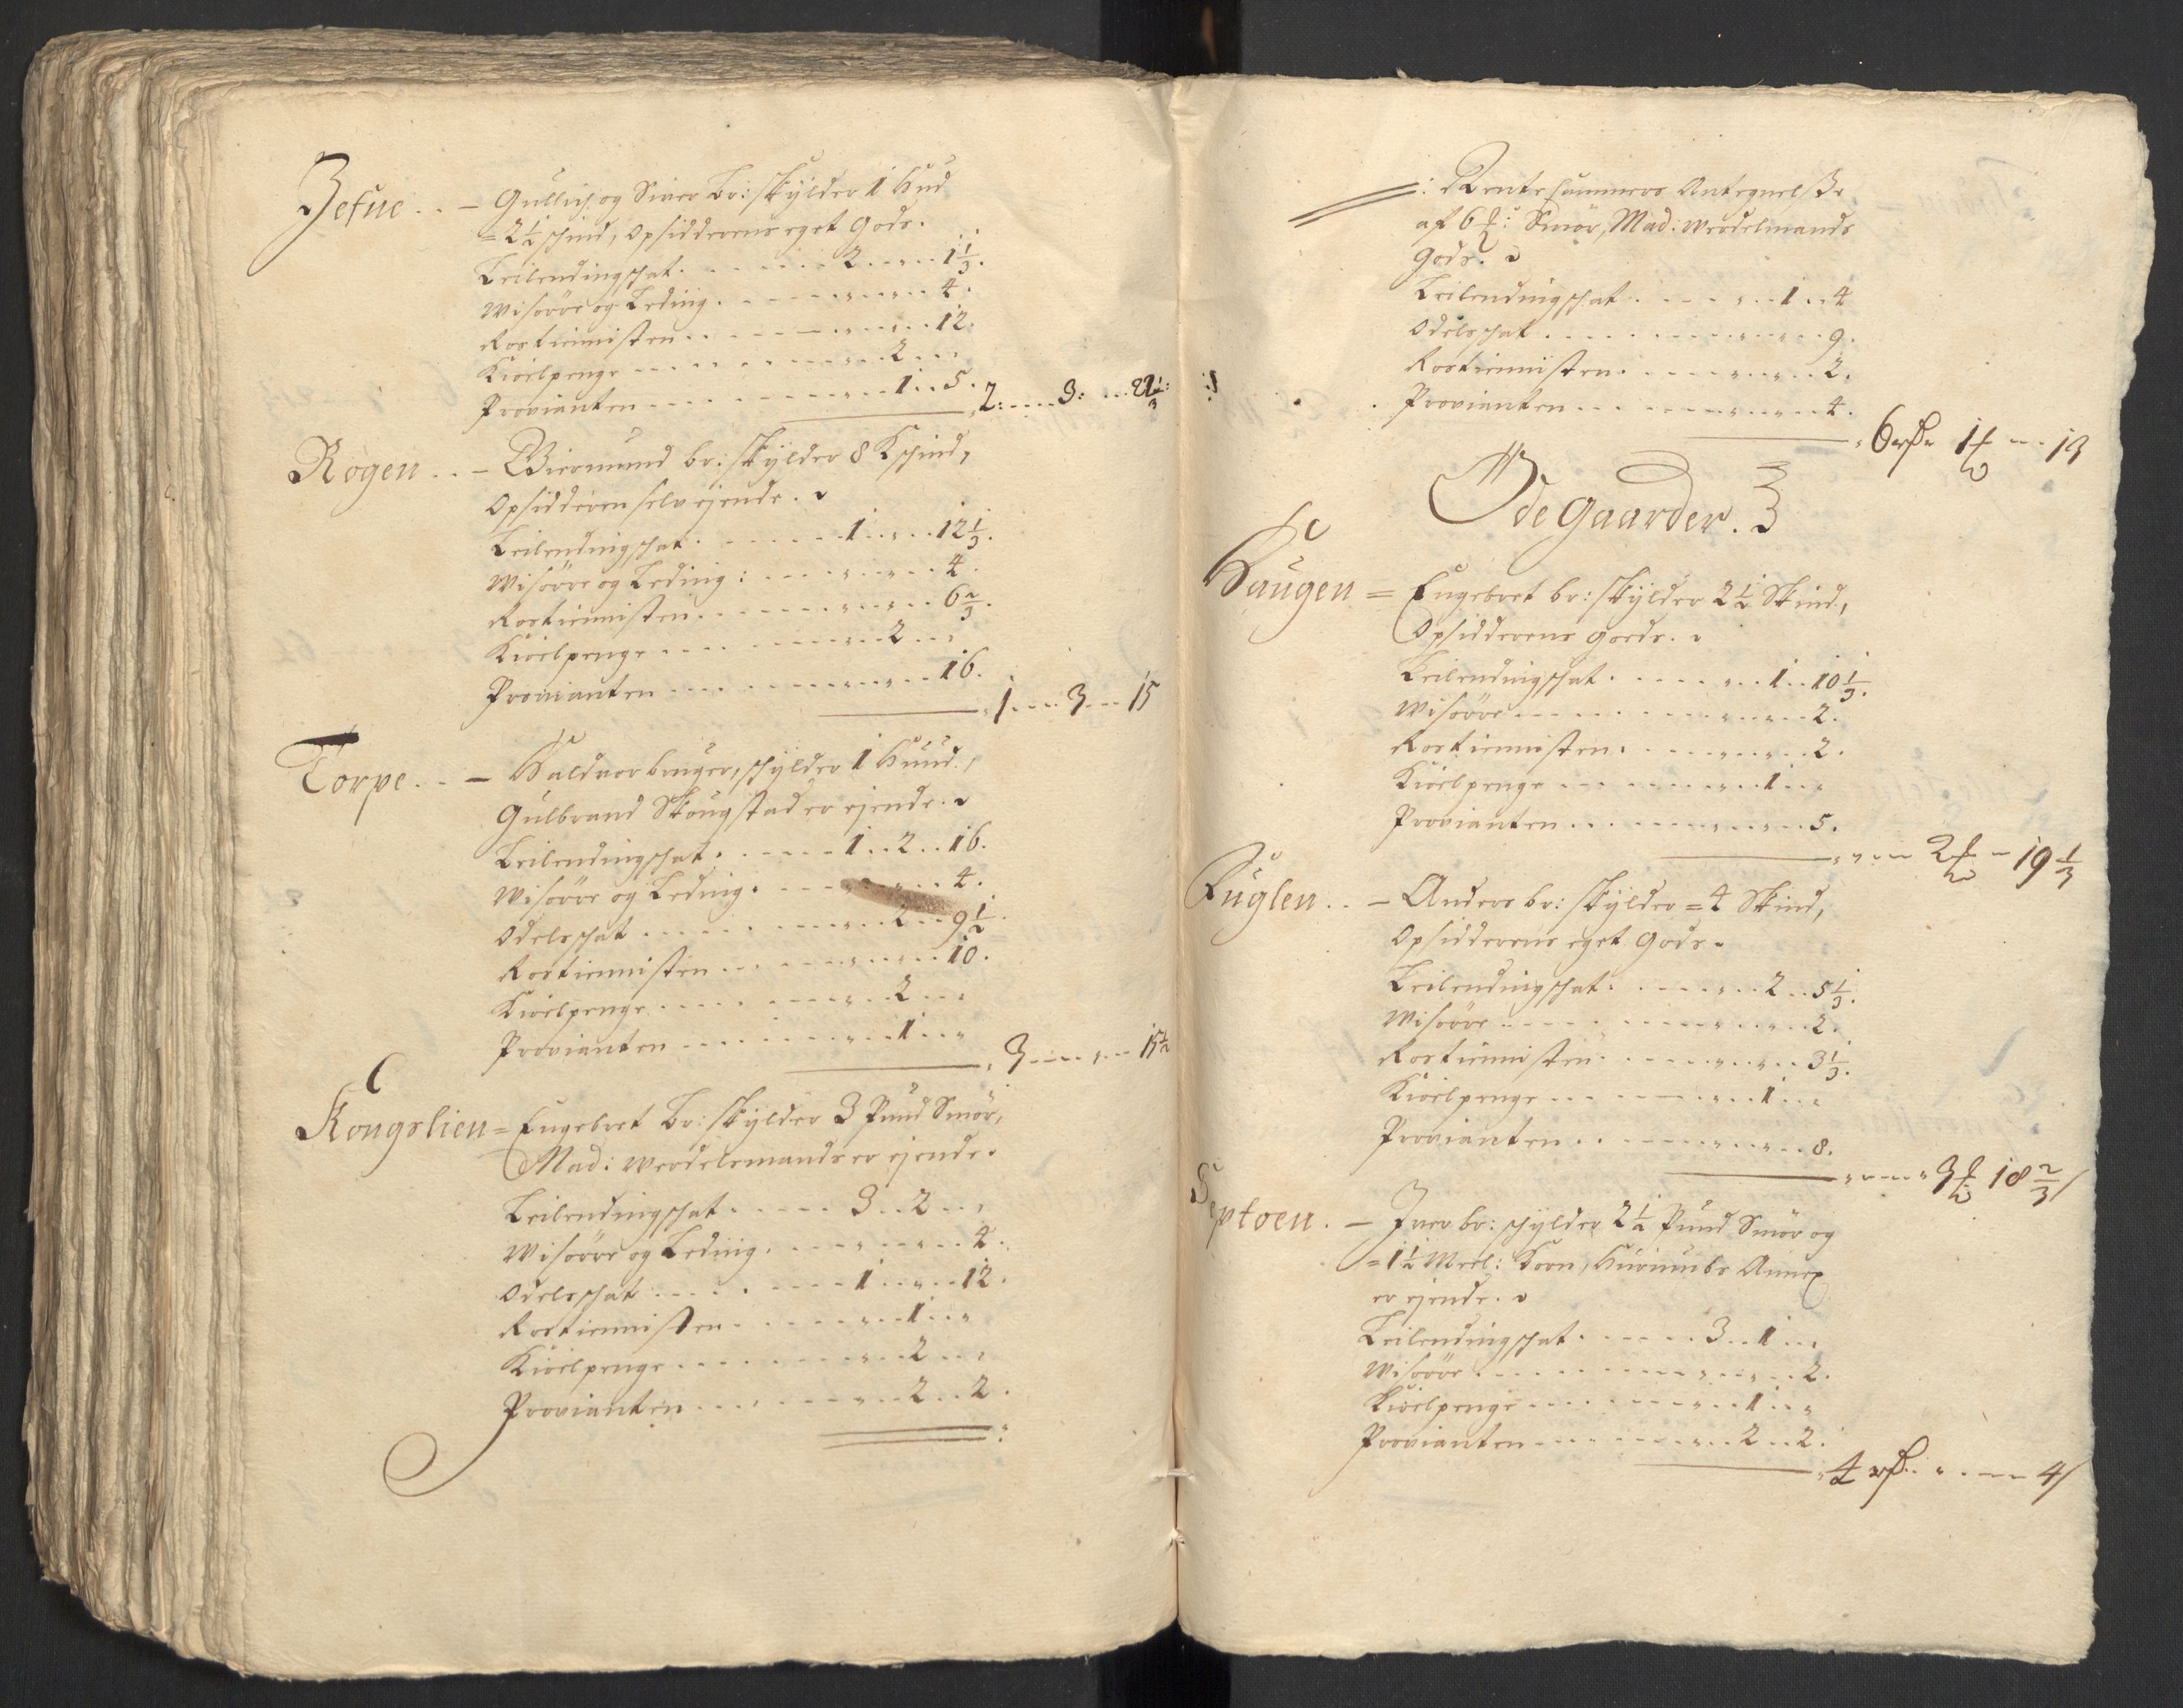 Jefue .. – Gullich og Siver br: skÿlder 1 Hud
= 2½ skind, Opsidderens eget Gods.
Leilendingschat . . . . . 2 .. „ .. 1⅓.
Wisøøre og Leding . . . . „ .. „ .. 4.
Rostiennisten . . . . „ .. „ .. 12.
Kioelpenge . . . . „ .. 2 .. „
Provianten . . . . „ .. 1 .. 5.
2: .... 3: ... 22⅓:
Rogen .. – Biermund br: skÿlder 8 Kschind,
Opsidderen selv ejende.
Leilendingschat . . . . 1 .. „ .. 12⅓.
Wisøøre og Leding: . . . „ .. „ .. 4.
Rostienisten . . . . „ .. „ .. 6⅔.
Kioelpenge . . . . „ .. 2 .. „
Provianten . . . . „ .. „ .. 16.
1 .... 3 ... 15
Torpe .. – Haldvor bruger, schÿlder 1 Huud,
Gulbrand Skougstad er ejende.
Leilendingschat . . . . 1 .. 2 .. 16.
Wisøøre og Leding . . . „ .. „ .. 4.
Odelsschat . . . . „ .. 2 .. 9½.
Rostiennisten . . . . „ .. „ .. 10.
Kioelpenge . . . . „ .. 2 .. „
Provianten . . . . „ .. 1 .. „
3 .... „ ... 15½
Kongslien = Engebret br: skÿlder 3 Pund Smør,
Mad: Werdelsmands er ejende.
Leilendingschat . . . . 3 .. 2 .. „
Wisøøre og Leding . . . „ .. „ .. 4.
Odelsschat . . . . 1 .. „ .. 12.
Rostiennisten . . . . „ .. 1 .. „
Kioelpenge . . . . „ .. 2 .. „
Provianten . . . . „ .. 2 .. 2.
: Rente Cammers Antegnelsse
af 6 Smør, Mad: Werdelmands
Gods.
Leilendingschat . . . . „ .. 1 .. 4
Odelsschat . . . . „ .. „ .. 9.
Rostiennisten . . . . „ .. „ .. 2.
Provianten . . . . „ .. „ .. 4.
6 1 ... 13
Ødegaarder.
Haugen = Engebret br: skÿlder 2½ Skind,
Opsidderens goeds.
Leilendingschat . . . . „ .. 1 .. 10⅓.
Wisøøre . . . . „ .. „ .. 2.
Rostiennisten . . . . „ .. „ .. 2.
Kioelpenge . . . . „ .. 1 .. „
Provianten . . . . „ .. „ .. 5.
2 – 19⅓
Fuglen .. – Anders br: skÿlder = 4 Skind,
Opsidderens eget Gods.
Leilendingschat . . . . „ .. 2 .. 5⅓.
Wisøøre . . . . „ .. „ .. 2.
Rostiennisten . . . . „ .. „ .. 3⅓.
Kioelpenge . . . . „ .. 1 .. „
Provianten . . . . „ .. „ .. 8.
3 18⅔
Septoen . – Iver br: schÿlder 2½ Pund Smør og
= 1½ Meel: Korn, Hurumbs Annex
er ejende.
Leilendingschat . . . . 3 .. 1 .. „
Wisøøre . . . . „ .. „ .. 2.
Kioelpenge . . . . „ .. 1 .. „
Provianten . . . . „ .. 2 .. 2.
4 . . . 4